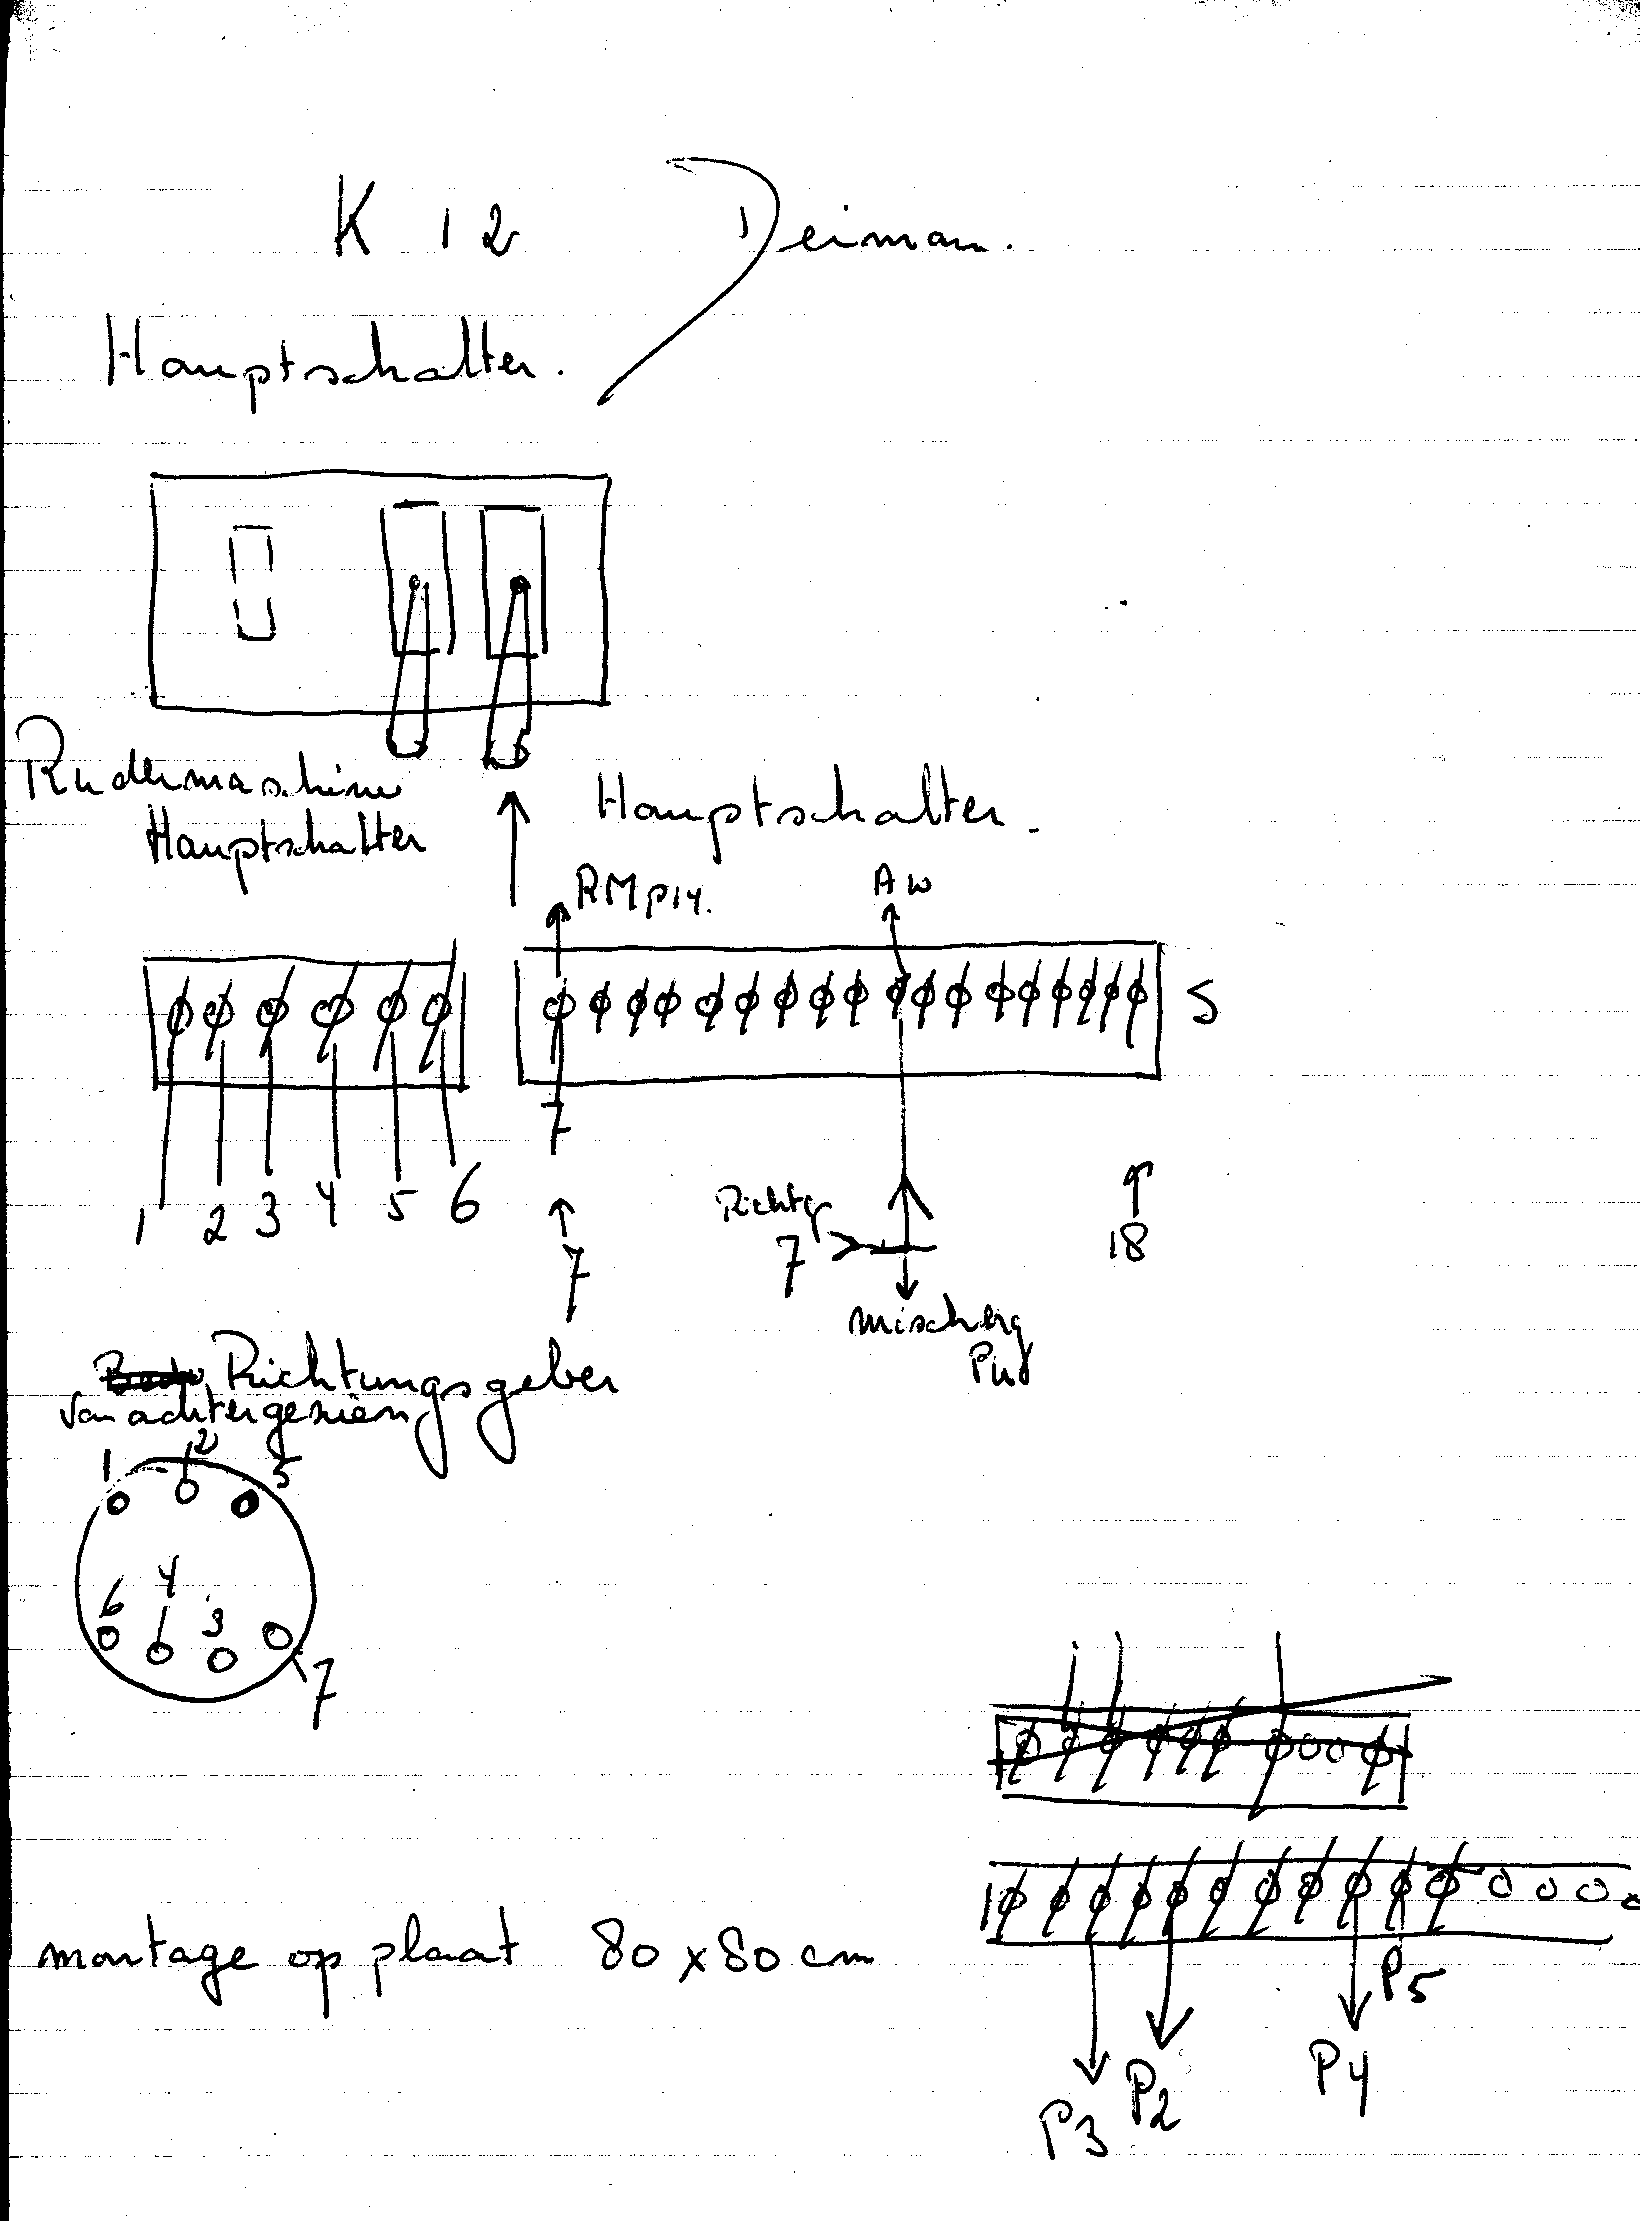 K 12 Deiman.
Hauptschalter.
Rudermaschine
Hauptschalter
Hauptschalter.
RM p14.
AW
S
7
1 2 3 4 5 6
7
Richtg
7
18
mischerg
Richtungsgeber
van achtergezien
1 2 5
6 4 3
7
montage op plaat 80 x 80 cm
P5
P4
P2
P3